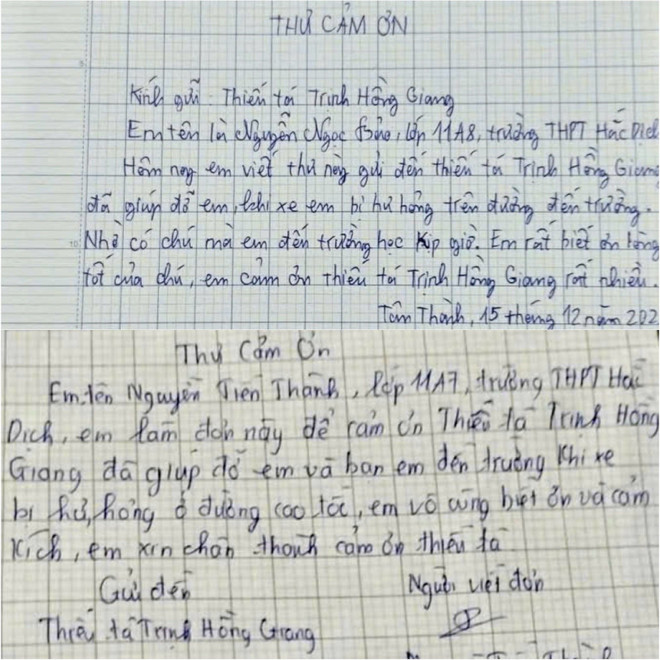 THƯ CẢM ƠN
Kính gửi: Thiếu tá Trịnh Hồng Giang
Em tên là Nguyễn Ngọc Bảo, lớp 11A8, trường THPT Hắc Dịch
Hôm nay em viết thư này gửi đến thiếu tá Trịnh Hồng Giang
đã giúp đỡ em, khi xe em bị hư hỏng trên đường đến trường.
Nhờ có chú mà em đến trường học kịp giờ. Em rất biết ơn lòng
tốt của chú, em cảm ơn thiếu tá Trịnh Hồng Giang rất nhiều.
Tân Thành, 15 tháng 12 năm 202
Thư Cảm Ơn
Em tên Nguyễn Tiến Thành, lớp 11A7, trường THPT Hắc
Dịch, em làm đơn này để cảm ơn Thiếu tá Trịnh Hồng
Giang đã giúp đỡ em và bạn em đến trường khi xe
bị hư, hỏng ở đường cao tốc, em vô cùng biết ơn và cảm
kích, em xin chân thành cảm ơn thiếu tá
Gửi đến
Người viết đơn
Thiếu tá Trịnh Hồng Giang